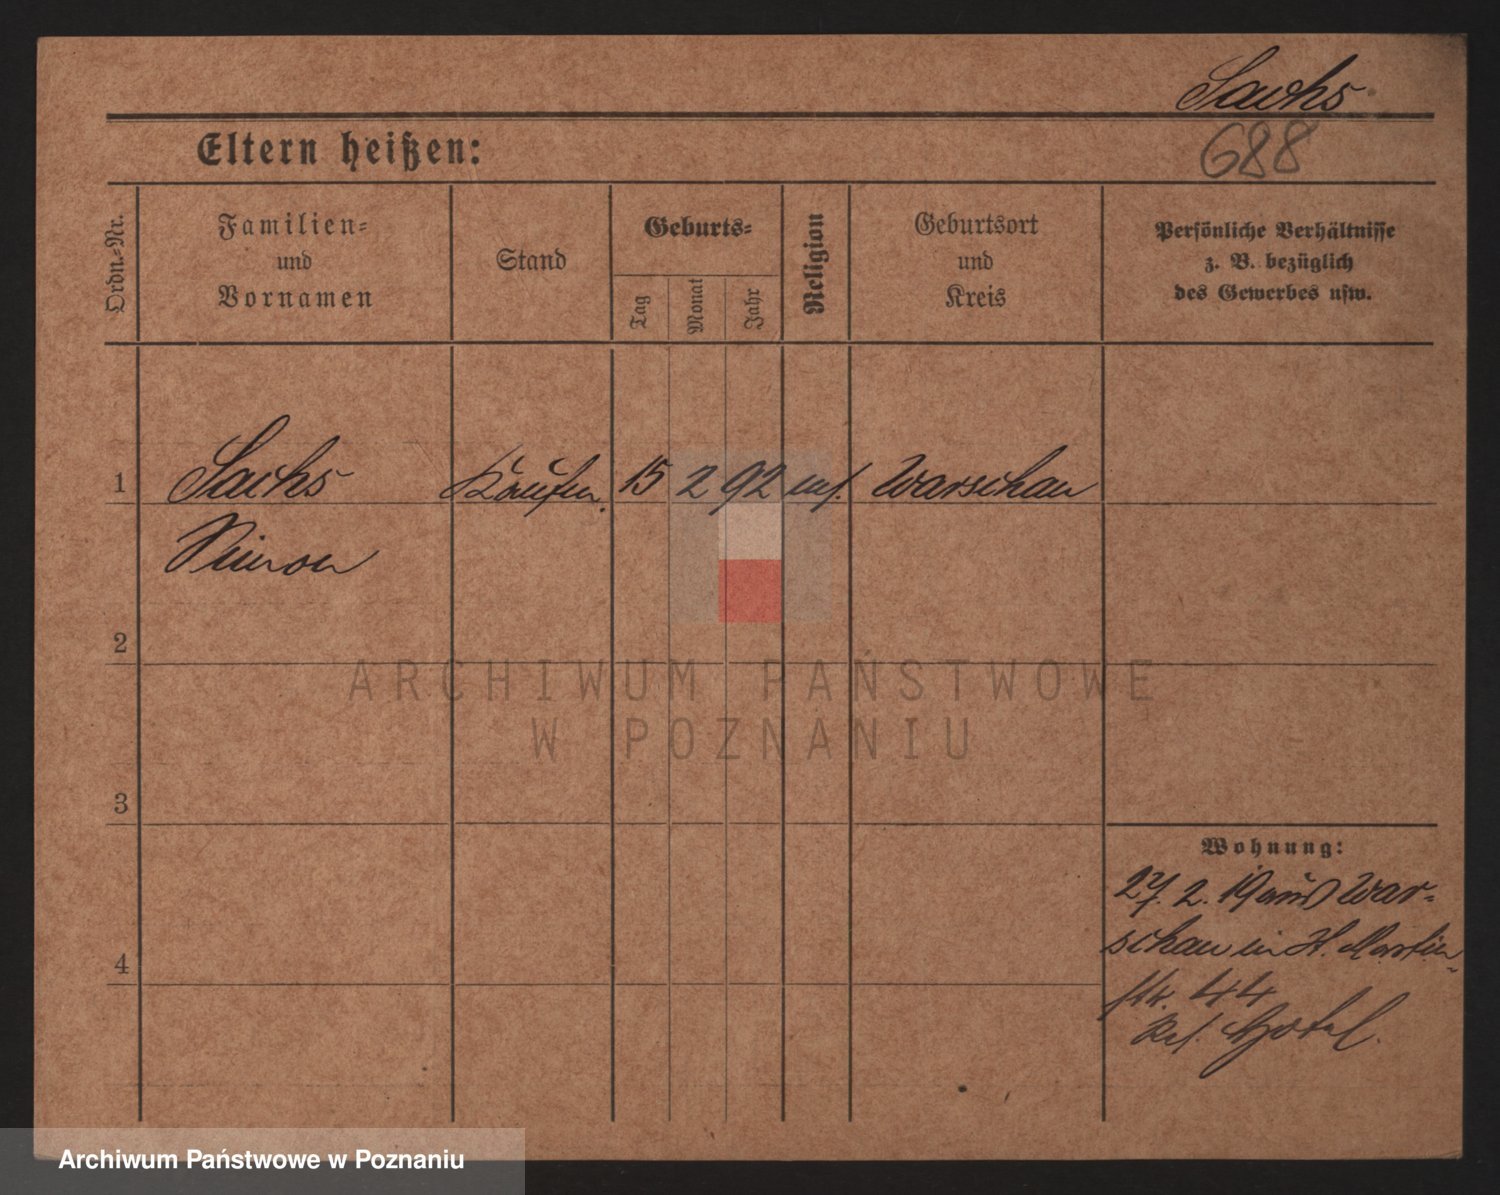 Sachs
688
Eltern heißen:
Ordn.-Nr.
Familien-
und
Vornamen
Stand
Geburts-
Tag
Monat
Jahr
Religion
Geburtsort
und
Kreis
Persönliche Verhältnisse
z. B. bezüglich
des Gewerbes usw.
1 Sachs Kaufm. 15 2 92 Warschau
Simon
2
3
4
ARCHIWUM PAŃSTWOWE
W POZNANIU
Wohnung:
27. 2. 19 aus War-
schau in St. Martin
str. 44
Hotel.
Archiwum Państwowe w Poznaniu